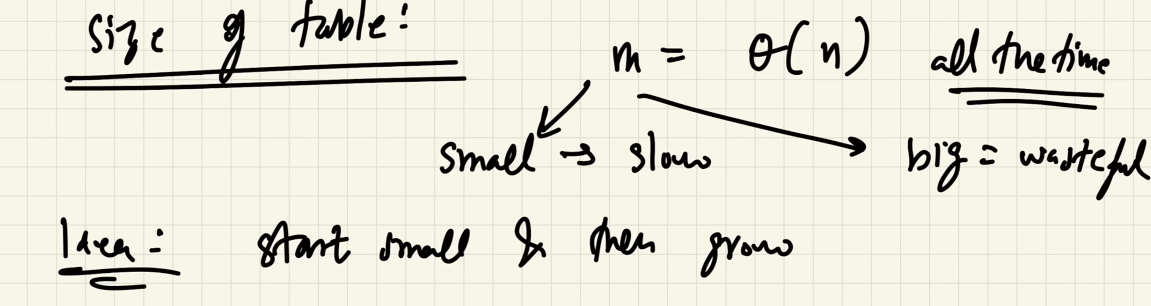 Size of table:
m = θ(n) all the time
small → slow big = wasteful
Idea: start small & then grow